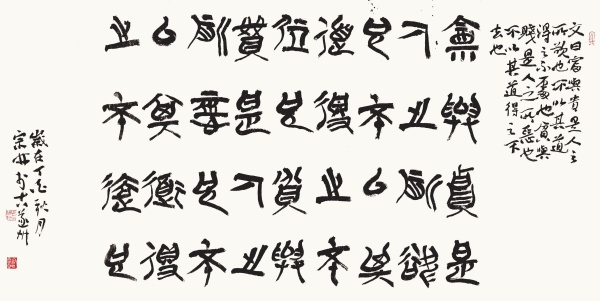 文曰富與貴是人之
所欲也不以其道
得之不處也貧與
賤是人之所惡也
不以其道得之不
去也
富與貴是
人之所欲
也不以其
道得之不
處也貧與
賤是人之
所惡也不
以其道得
之不去也
歲在丁酉秋月